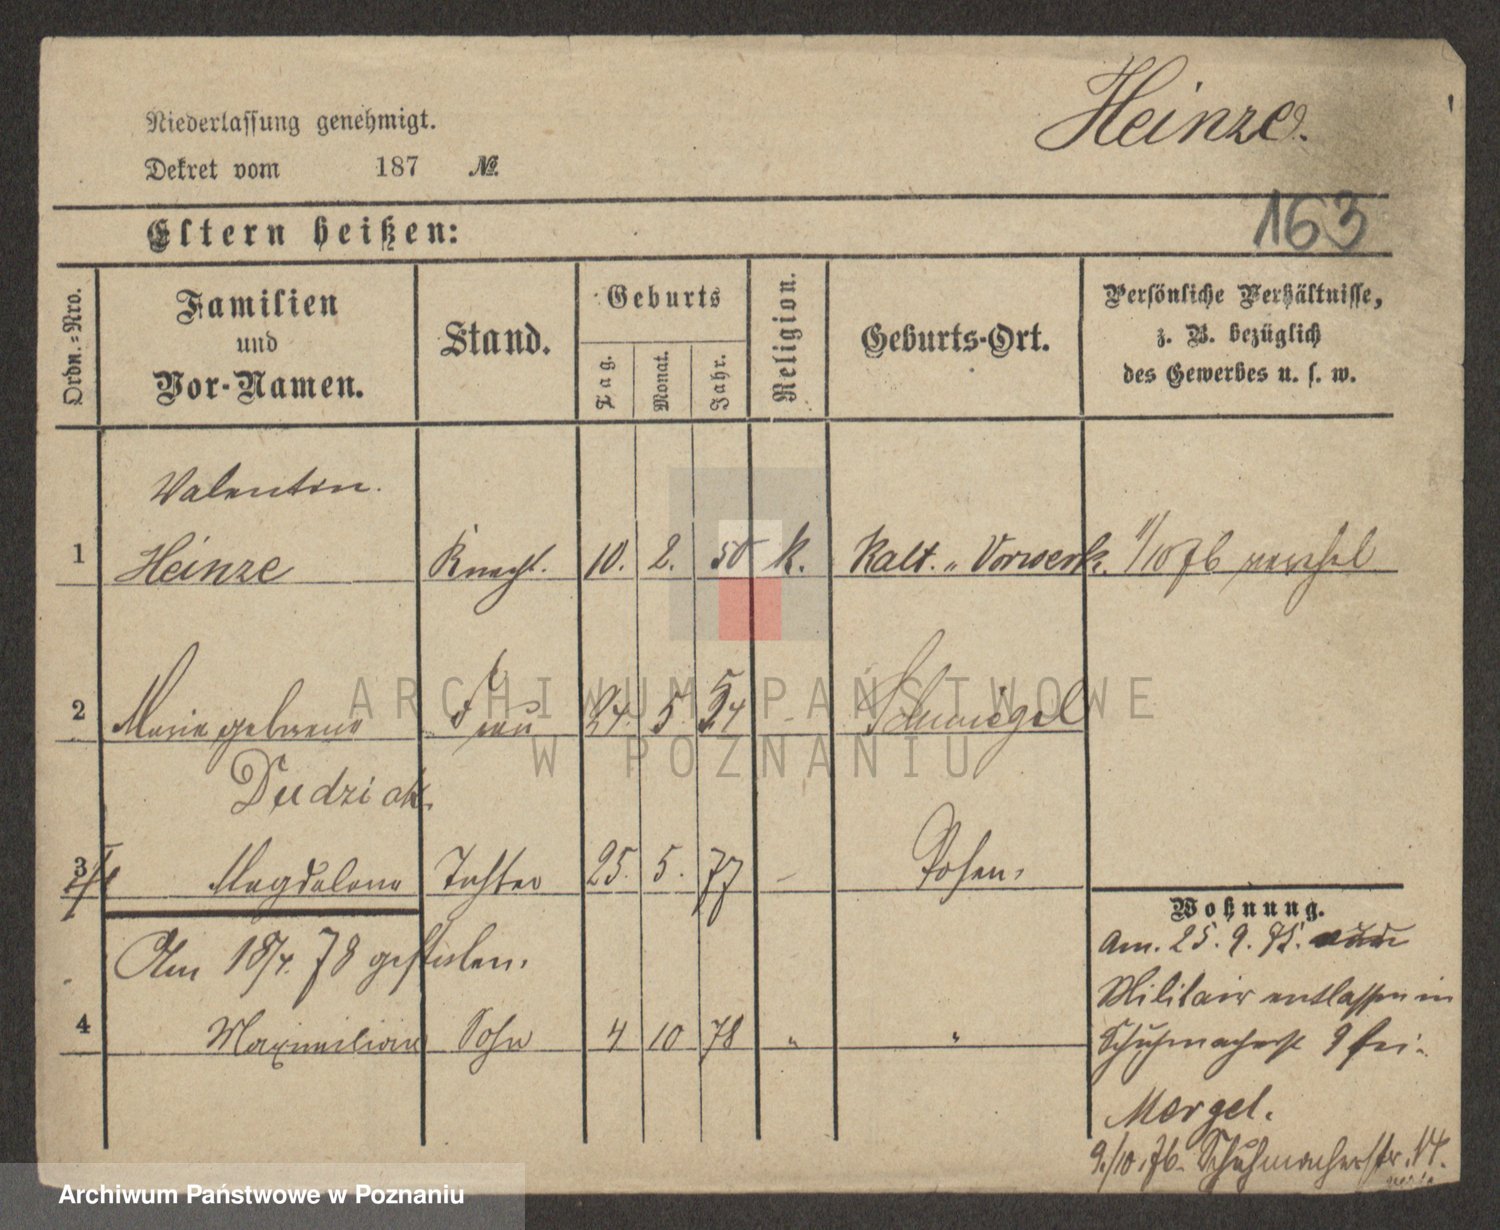 Heinze.
Niederlassung genehmigt.
Dekret vom 187 №.
163
Eltern heißen:
Ordn.=Nro.
Familien und Vor-Namen.
Stand.
Geburts
Tag. Monat. Jahr.
Religion.
Geburts-Ort.
Persönliche Verhältnisse,
z. B. bezüglich
des Gewerbes u. s. w.
Valentin.
1 Heinze Knecht. 10. 2. 50 k. Kalt. „ Vorwerk. 1/10 76
2 Marie geborene Frau 24. 5. 54 - Schmiegel
Dudziak.
3 Magdalena Tochter 25. 5. 77 - Posen.
Am 18/4. 78 gestorben.
4 Maximilian Sohn 4 10 78 „ „
Wohnung.
Am. 25. 9. 75. zum
Militair entlassen in
Schuhmacherst 9 bei
Mergel.
9./10. 76. Schuhmacherstr. 14.
ARCHIWUM PAŃSTWOWE
W POZNANIU
Archiwum Państwowe w Poznaniu